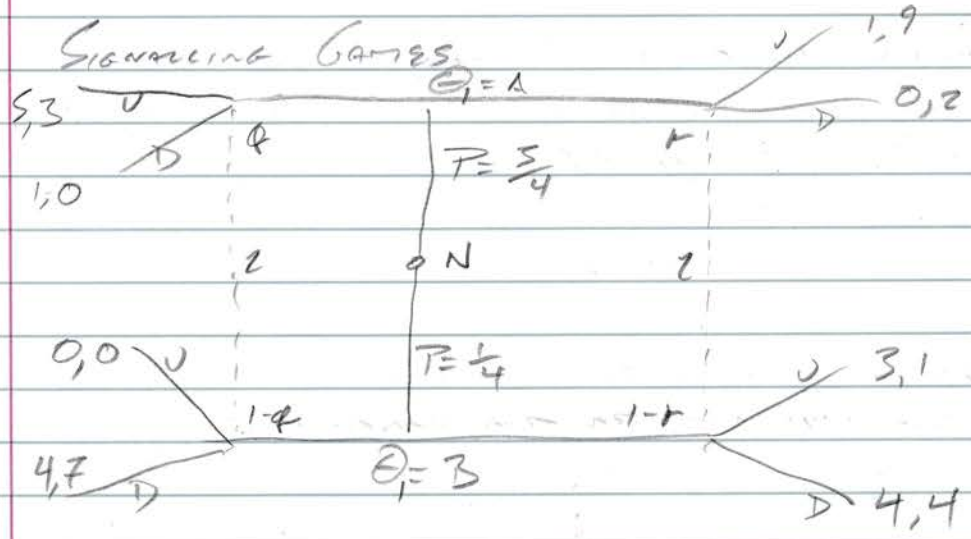 SIGNALLING GAMES
Θ₁ = A
5,3 U
U 1,9
D 0,2
q
r
D
1,0
P = 3/4
2
N
2
0,0 U
P = 1/4
U 3,1
1-q
1-r
4,7 D
Θ₁ = B
D 4,4